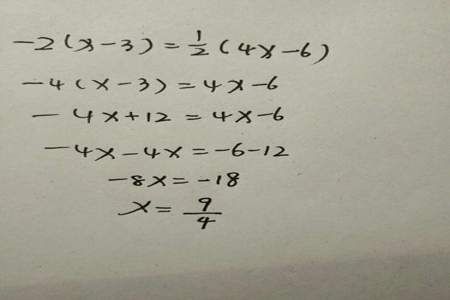 -2(x-3)=1/2(4x-6)
-4(x-3)=4x-6
-4x+12=4x-6
-4x-4x=-6-12
-8x=-18
x=9/4